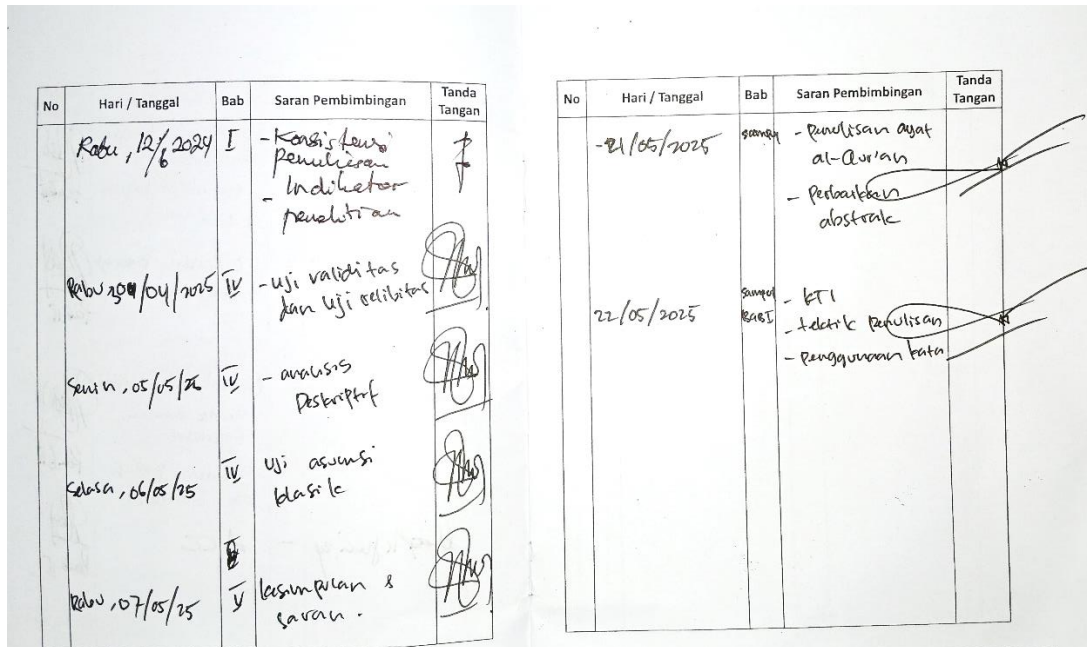 No Hari / Tanggal Bab Saran Pembimbingan Tanda Tangan
Rabu, 12/6 2024 I - Konsistensi
penulisan
- Indikator
penelitian
Rabu 30/04/2025 IV - uji validitas
dan uji relibitas
Senin, 05/05/25 IV - analisis
Deskriptif
Selasa, 06/05/25 IV uji asumsi
klasik
Rabu, 07/05/25 V kesimpulan &
saran.
No Hari / Tanggal Bab Saran Pembimbingan Tanda Tangan
-21/05/2025 - penulisan ayat
al-Qur'an
- Perbaikan
abstrak
22/05/2025 sampul - KTI
BAB I - tektik penulisan
- penggunaan kata